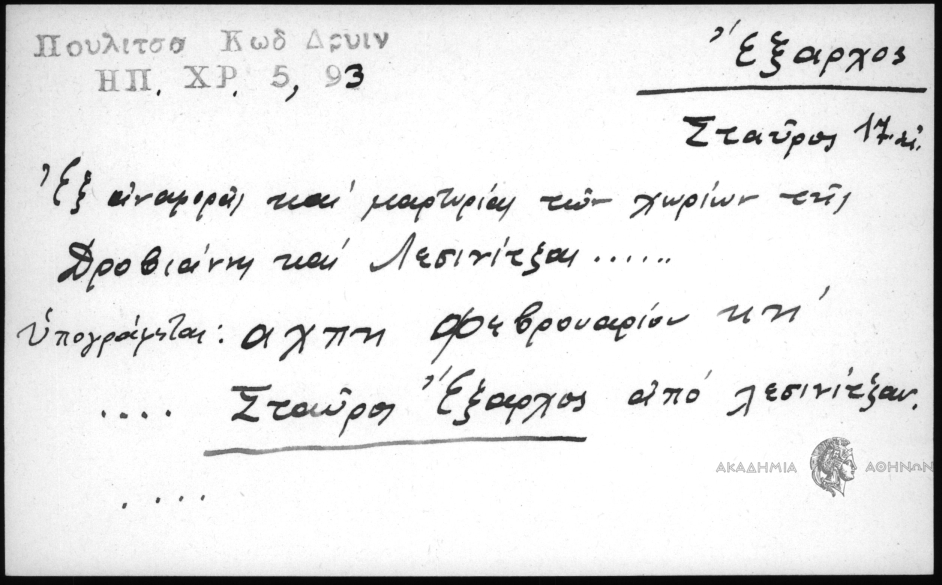 Πουλιτσα Κωδ Δρυιν
ΗΠ. ΧΡ. 5, 93
Ἔξαρχος
Σταῦρος 17 αἰ.
Ἐξ ἀναφορᾶς καὶ μαρτυρίας τῶν χωρίων τῆς
Δροβιάνης καὶ Λεσινίτζας ......
Ὑπογράφεται: αχπη Φεβρουαρίου κη'
.... Σταῦρος Ἔξαρχος ἀπό λεσινίτζαν.
....
ΑΚΑΔΗΜΙΑ ΑΘΗΝΩΝ